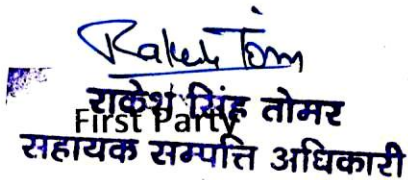 Rakesh Tom
राकेश सिंह तोमर
First Party
सहायक सम्पत्ति अधिकारी